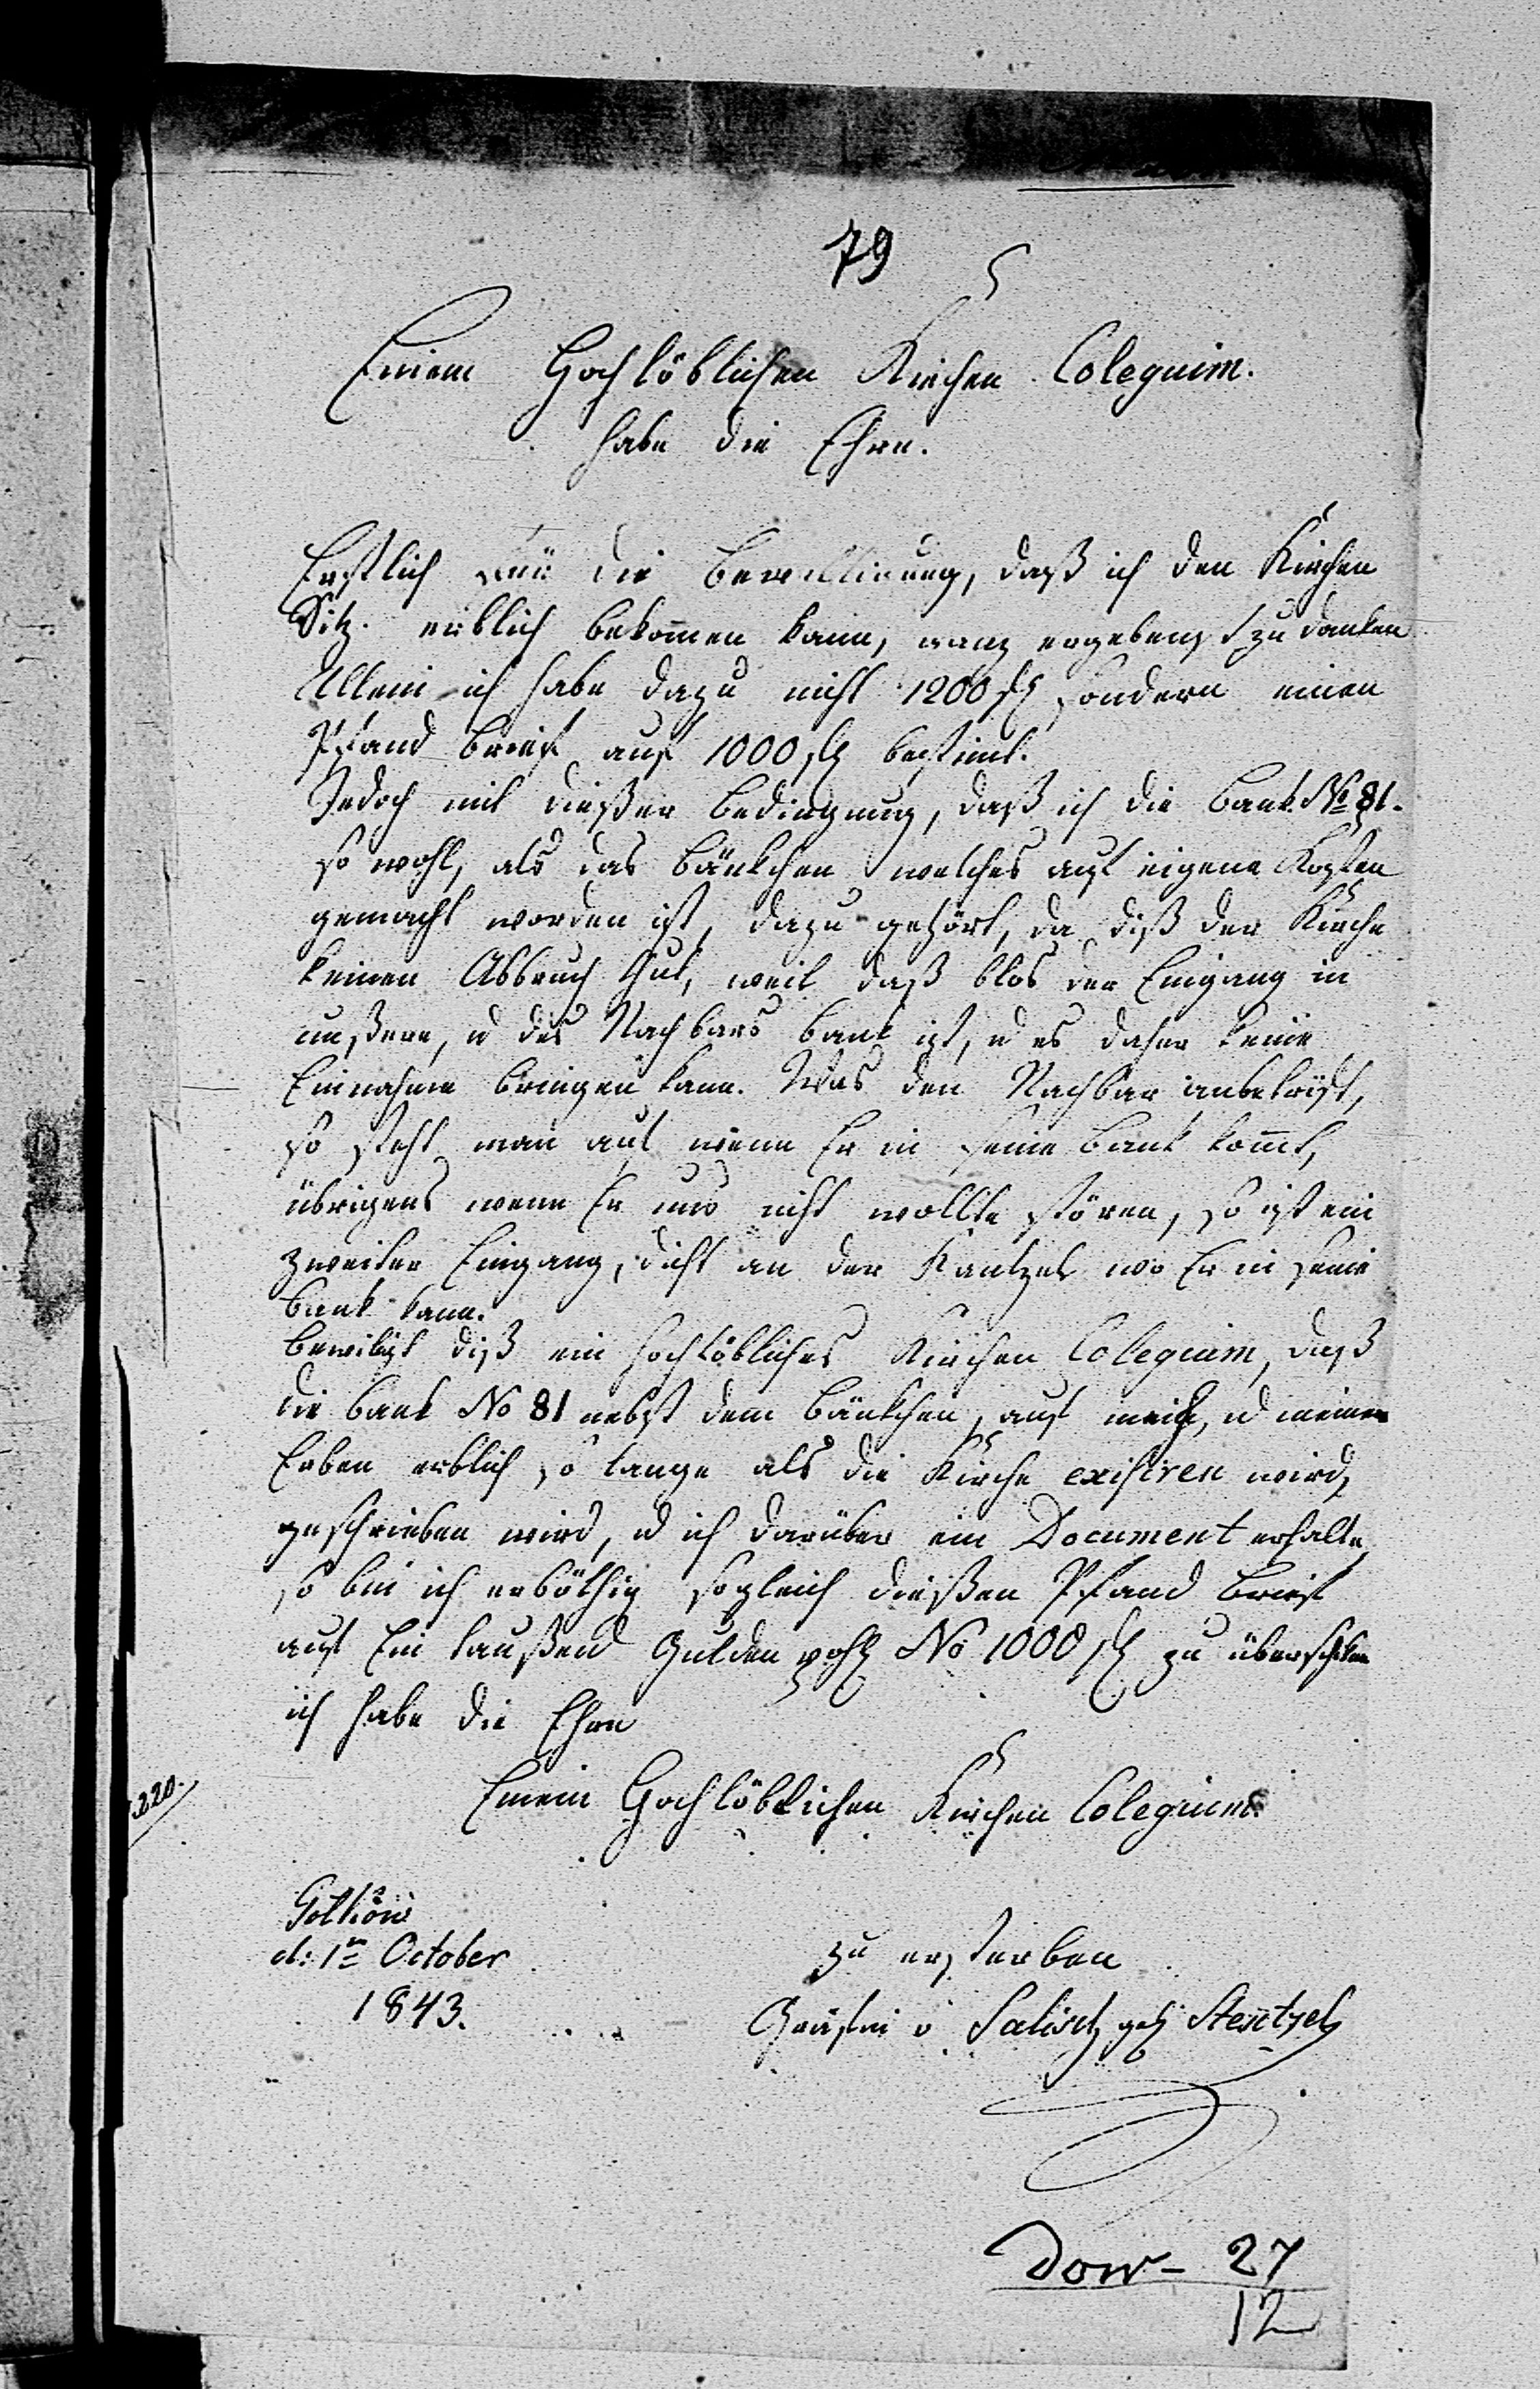 79
Einem Hochlöblichen Kirchen Coleguim.
habe die Ehre.
Erstlich für die Bewilligung, daß ich den Kirchen
Sitz. erblich bekomen kann, ganz ergebenst zu danken
Allein ich habe dazu nicht 1200 fl sondern einen
Pfand Brief auf 1000 fl bestimt.
Jedoch mit dießer Bedingung, daß ich die Bank No 81.
so wohl, als das Bänkchen welches auf eigene Kosten
gemacht worden ist, dazu gehört, da diß der Kirche
keinen Abbruch thut, weil daß blos der Eingang in
unßere, u des Nachbars Bank ist, u es daher keine
Einnahme bringen kann. Was den Nachbar anbetrift,
so steht man auf wenn Er in seine Bank komt,
übrigens wenn Er uns nicht wollte stören, so ist ein
zweiter Eingang, dicht an der Kantzel wo Er in seine
Bank kann.
Bewiligt diß ein Hochlöbliches Kirchen Colegium, daß
die Bank No 81 nebst dem Bänkchen, auf mich, u meine
Erben erblich so lange als die Kirche existiren wird,
geschrieben wird, u ich darüber ein Document erhalte,
so bin ich erböthig sogleich dießen Pfand Brief
auf Ein taußend Gulden pohl No 1000 fl zu überschiken
ich habe die Ehre
Einem Hochlöblichen Kirchen Colegium
220.
d: 1n October
1843.
zu ersterben
Gräfin v Salisch geb Stentzel
Dow - 27
12